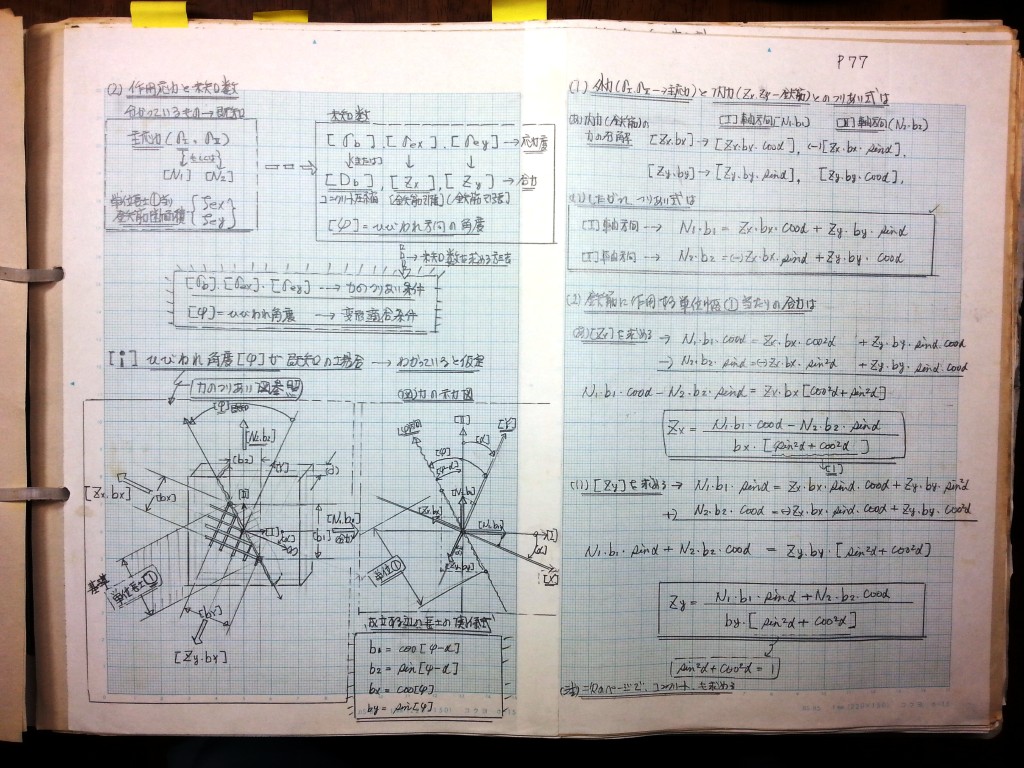 (2) 作用応力と未知数
分かっているもの→既知
主応力(σI、σII)
もしくは
[N1] [N2]
単位長さ①当り
鉄筋断面積 { ζex
ζey
未知数
[σb]、[σex]、[σey]→応力度
または
[Db]、[Zx]、[Zy]→合力
コンクリート圧縮 (鉄筋引張)(鉄筋引張)
[φ]=ひびわれ方向の角度
→未知数を求める方法
[σb]、[σex]、[σey] → 力のつりあい条件
[φ]=ひびわれ角度 → 変形適合条件
[i] ひびわれ角度[φ]が既知の場合 → わかっていると仮定
力のつりあい図参照
[φ]
[N2.b2]
[b2]
[Zx.bx]
[bx]
[N1.b1]
合力
[b1]
基準
単位長さ①
[by]
[Zy.by]
(図)力の示力図
[II]
[Y]
[α]
[φ]
[φ-α]
[N2.b2]
[Zx.bx]
[N1.b1]
[I]
[α]
[X]
[Zy.by]
単位①
成立する辺の長さの関係式
b1 = cos[φ-α]
b2 = sin[φ-α]
bx = cos[φ]
by = sin[φ]
P77
(1) 外力(σI、σII→主応力)と内力(Zx、Zy→鉄筋)とのつりあい式は
(a) 内力(鉄筋)の
力の分解
[I]軸方向(N1.b1) [II]軸方向(N2.b2)
[Zx.bx]→[Zx.bx.cosα]、(-)[Zx.bx.sinα]、
[Zy.by]→[Zy.by.sinα]、[Zy.by.cosα]、
したがって、つりあい式は
[I]軸方向 → N1.b1 = Zx.bx.cosα + Zy.by.sinα
[II]軸方向 → N2.b2 = (-)Zx.bx.sinα + Zy.by.cosα
(2) 鉄筋に作用する単位幅①当たりの合力は
(a)[Zx]を求める → N1.b1.cosα = Zx.bx.cos²α + Zy.by.sinα.cosα
-) N2.b2.sinα = (-)Zx.bx.sin²α + Zy.by.sinα.cosα
N1.b1.cosα - N2.b2.sinα = Zx.bx[cos²α + sin²α]
Zx = N1.b1.cosα - N2.b2.sinα
bx.[sin²α + cos²α]
[1]
[Zy]を求める → N1.b1.sinα = Zx.bx.sinα.cosα + Zy.by.sin²α
+) N2.b2.cosα = (-)Zx.bx.sinα.cosα + Zy.by.cos²α
N1.b1.sinα + N2.b2.cosα = Zy.by.[sin²α + cos²α]
Zy = N1.b1.sinα + N2.b2.cosα
by.[sin²α + cos²α]
[sin²α + cos²α = 1]
次のページで コンクリートを求める